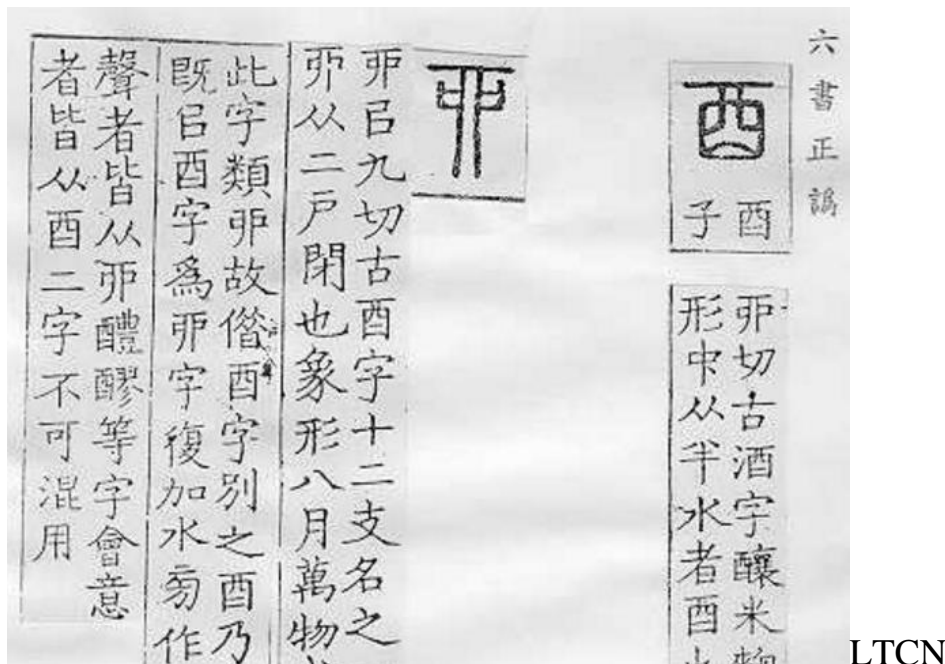 六書正譌
酉
酉
子
丣切古酒字釀米
形中从半水者酉
丣
丣㠯九切古酉字十二支名之
丣从二戸閉也象形八月萬物
此字類戼故借酉字别之酉乃
既㠯酉字爲丣字復加水㫄作
聲者皆从丣醴醪等字會意
者皆从酉二字不可混用
LTCN